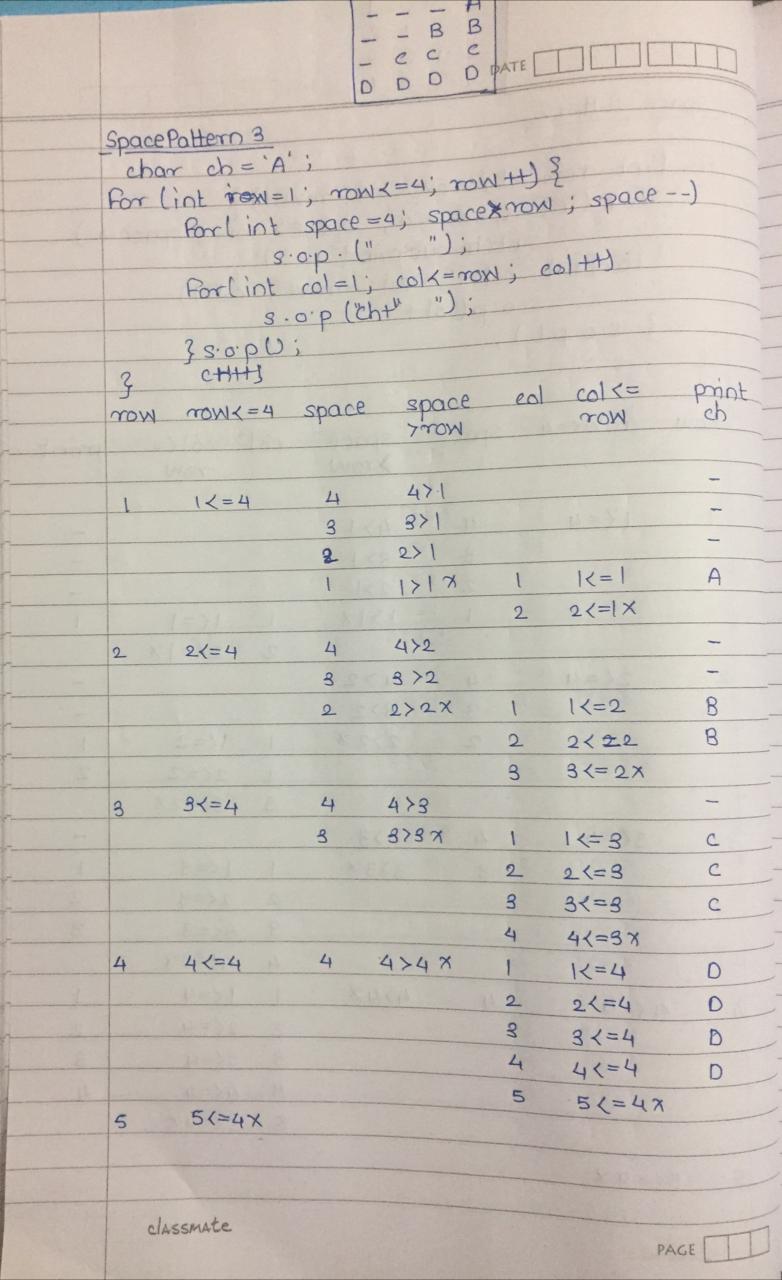 - - - A
- - B B
- C C C
D D D D
DATE
SpacePattern 3
char ch = 'A' ;
for (int row=1; row<=4; row++) {
for( int space =4; space>row ; space --)
s.o.p. (" ");
for(int col=1; col<=row; col++)
s.o.p ("ch+" ");
} s.o.p();
} ch++;
row row<=4 space space >row col col<= row print ch
1 1<=4 4 4>1 -
3 3>1 -
2 2>1 -
1 1>1 x 1 1<=1 A
2 2<=1 x
2 2<=4 4 4>2 -
3 3>2 -
2 2>2 x 1 1<=2 B
2 2<=2 B
3 3<=2 x
3 3<=4 4 4>3 -
3 3>3 x 1 1<=3 C
2 2<=3 C
3 3<=3 C
4 4<=3 x
4 4<=4 4 4>4 x 1 1<=4 D
2 2<=4 D
3 3<=4 D
4 4<=4 D
5 5<=4 x
5 5<=4 x
classmate
PAGE